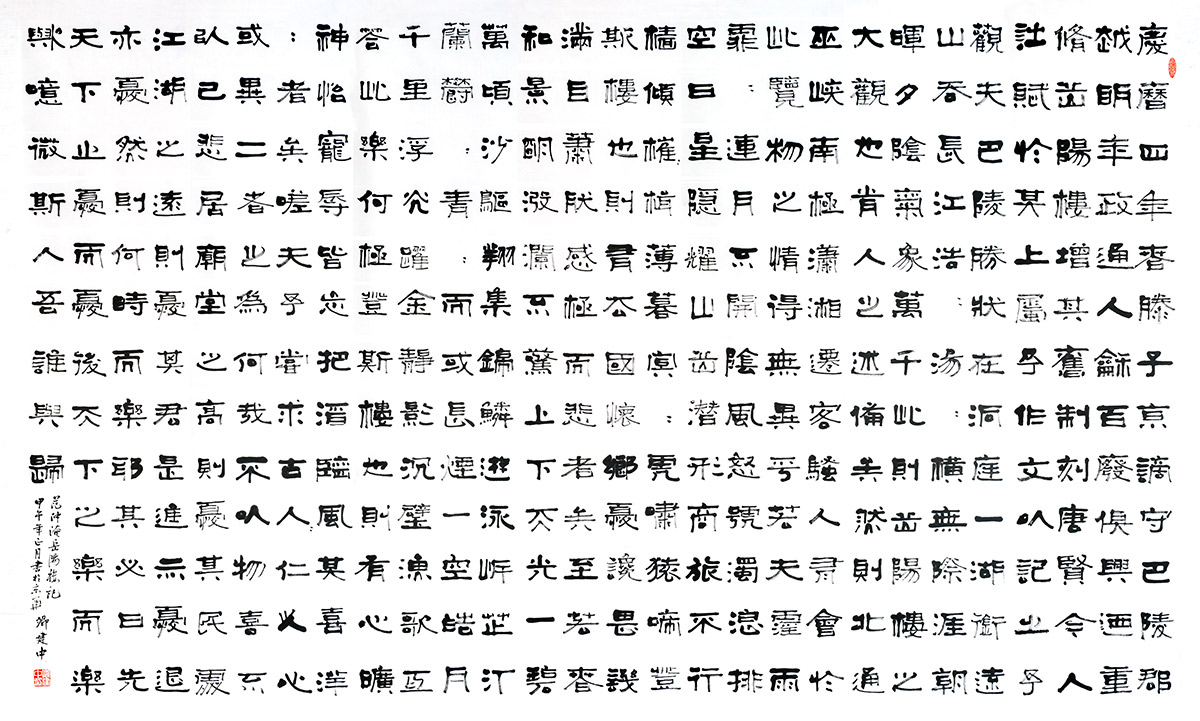 慶曆四年春滕子京謫守巴陵郡
越明年政通人龢百廢俱興迺重
脩岳陽樓增其舊制刻唐賢令人
詩賦於其上屬予作文以記之予
觀夫巴陵勝狀在洞庭一湖銜遠
山吞長江浩〻湯〻橫無際涯朝
暉夕陰氣象萬千此則岳陽樓之
大觀也前人之述備矣然則北通
巫峽南極瀟湘遷客騷人多會於
此覽物之情得無異乎若夫霪雨
霏〻連月不開陰風怒號濁浪排
空日星隱耀山岳潛形商旅不行
檣傾摧楫薄暮冥〻虎嘯猿啼登
斯樓也則有去國懷鄉憂讒畏譏
滿目蕭肰感極而悲者矣至若春
和景明波瀾不驚上下天光一碧
萬頃沙鷗翔集錦鱗游泳岸芷汀
蘭鬱〻青〻而或長煙一空皓月
千里浮光躍金靜影沉璧漁歌互
荅此樂何極登斯樓也則有心曠
神怡寵辱皆忘把酒臨風其喜洋
〻者矣嗟夫予嘗求古人仁人心
或異二者之為何哉不以物喜不
以己悲居廟堂之高則憂其民處
江湖之遠則憂其君是進亦憂退
亦憂然則何時而樂耶其必曰先
天下之憂而憂後天下之樂而樂
歟噫微斯人吾誰與歸
范仲淹岳陽樓記
甲午年正月書於京華 建中